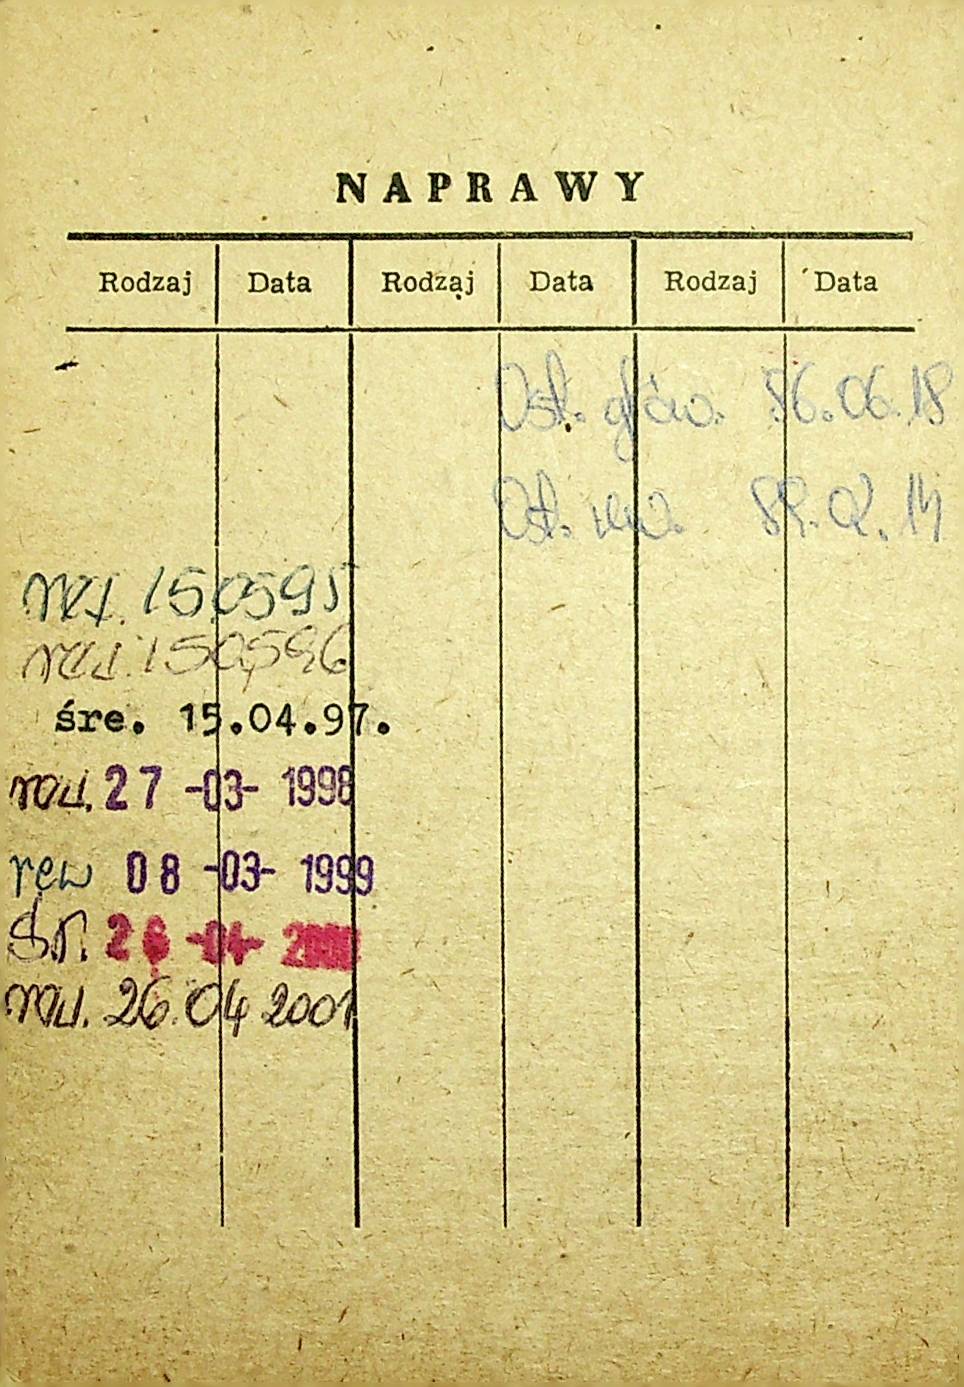 NAPRAWY
Rodzaj Data Rodzaj Data Rodzaj Data
Ost. głów. 86.06.18
Ost. rew. 89.02.14
150595
rew. 150596
śre. 15.04.97.
rew. 27 -03- 1998
rew 08 -03- 1999
Śr. 26 -04- 2000
rew. 26.04 2001